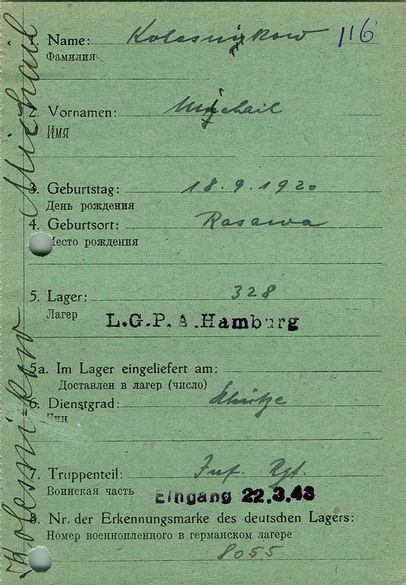 Kolesnikow Michail
1. Name: Kolesnikow 116
Фамилия
2. Vornamen: Michail
Имя
3. Geburtstag: 18.9.1920
День рождения
4. Geburtsort: Rasawa
Место рождения
5. Lager: 328
Лагер
L.G.P.A. Hamburg
5a. Im Lager eingeliefert am:
Доставлен в лагер (число)
6. Dienstgrad: Schütze
Чин
7. Truppenteil: Inf. Rgt.
Воинская часть Eingang 22.3.43
8. Nr. der Erkennungsmarke des deutschen Lagers:
Номер военнопленного в германском лагере
8055